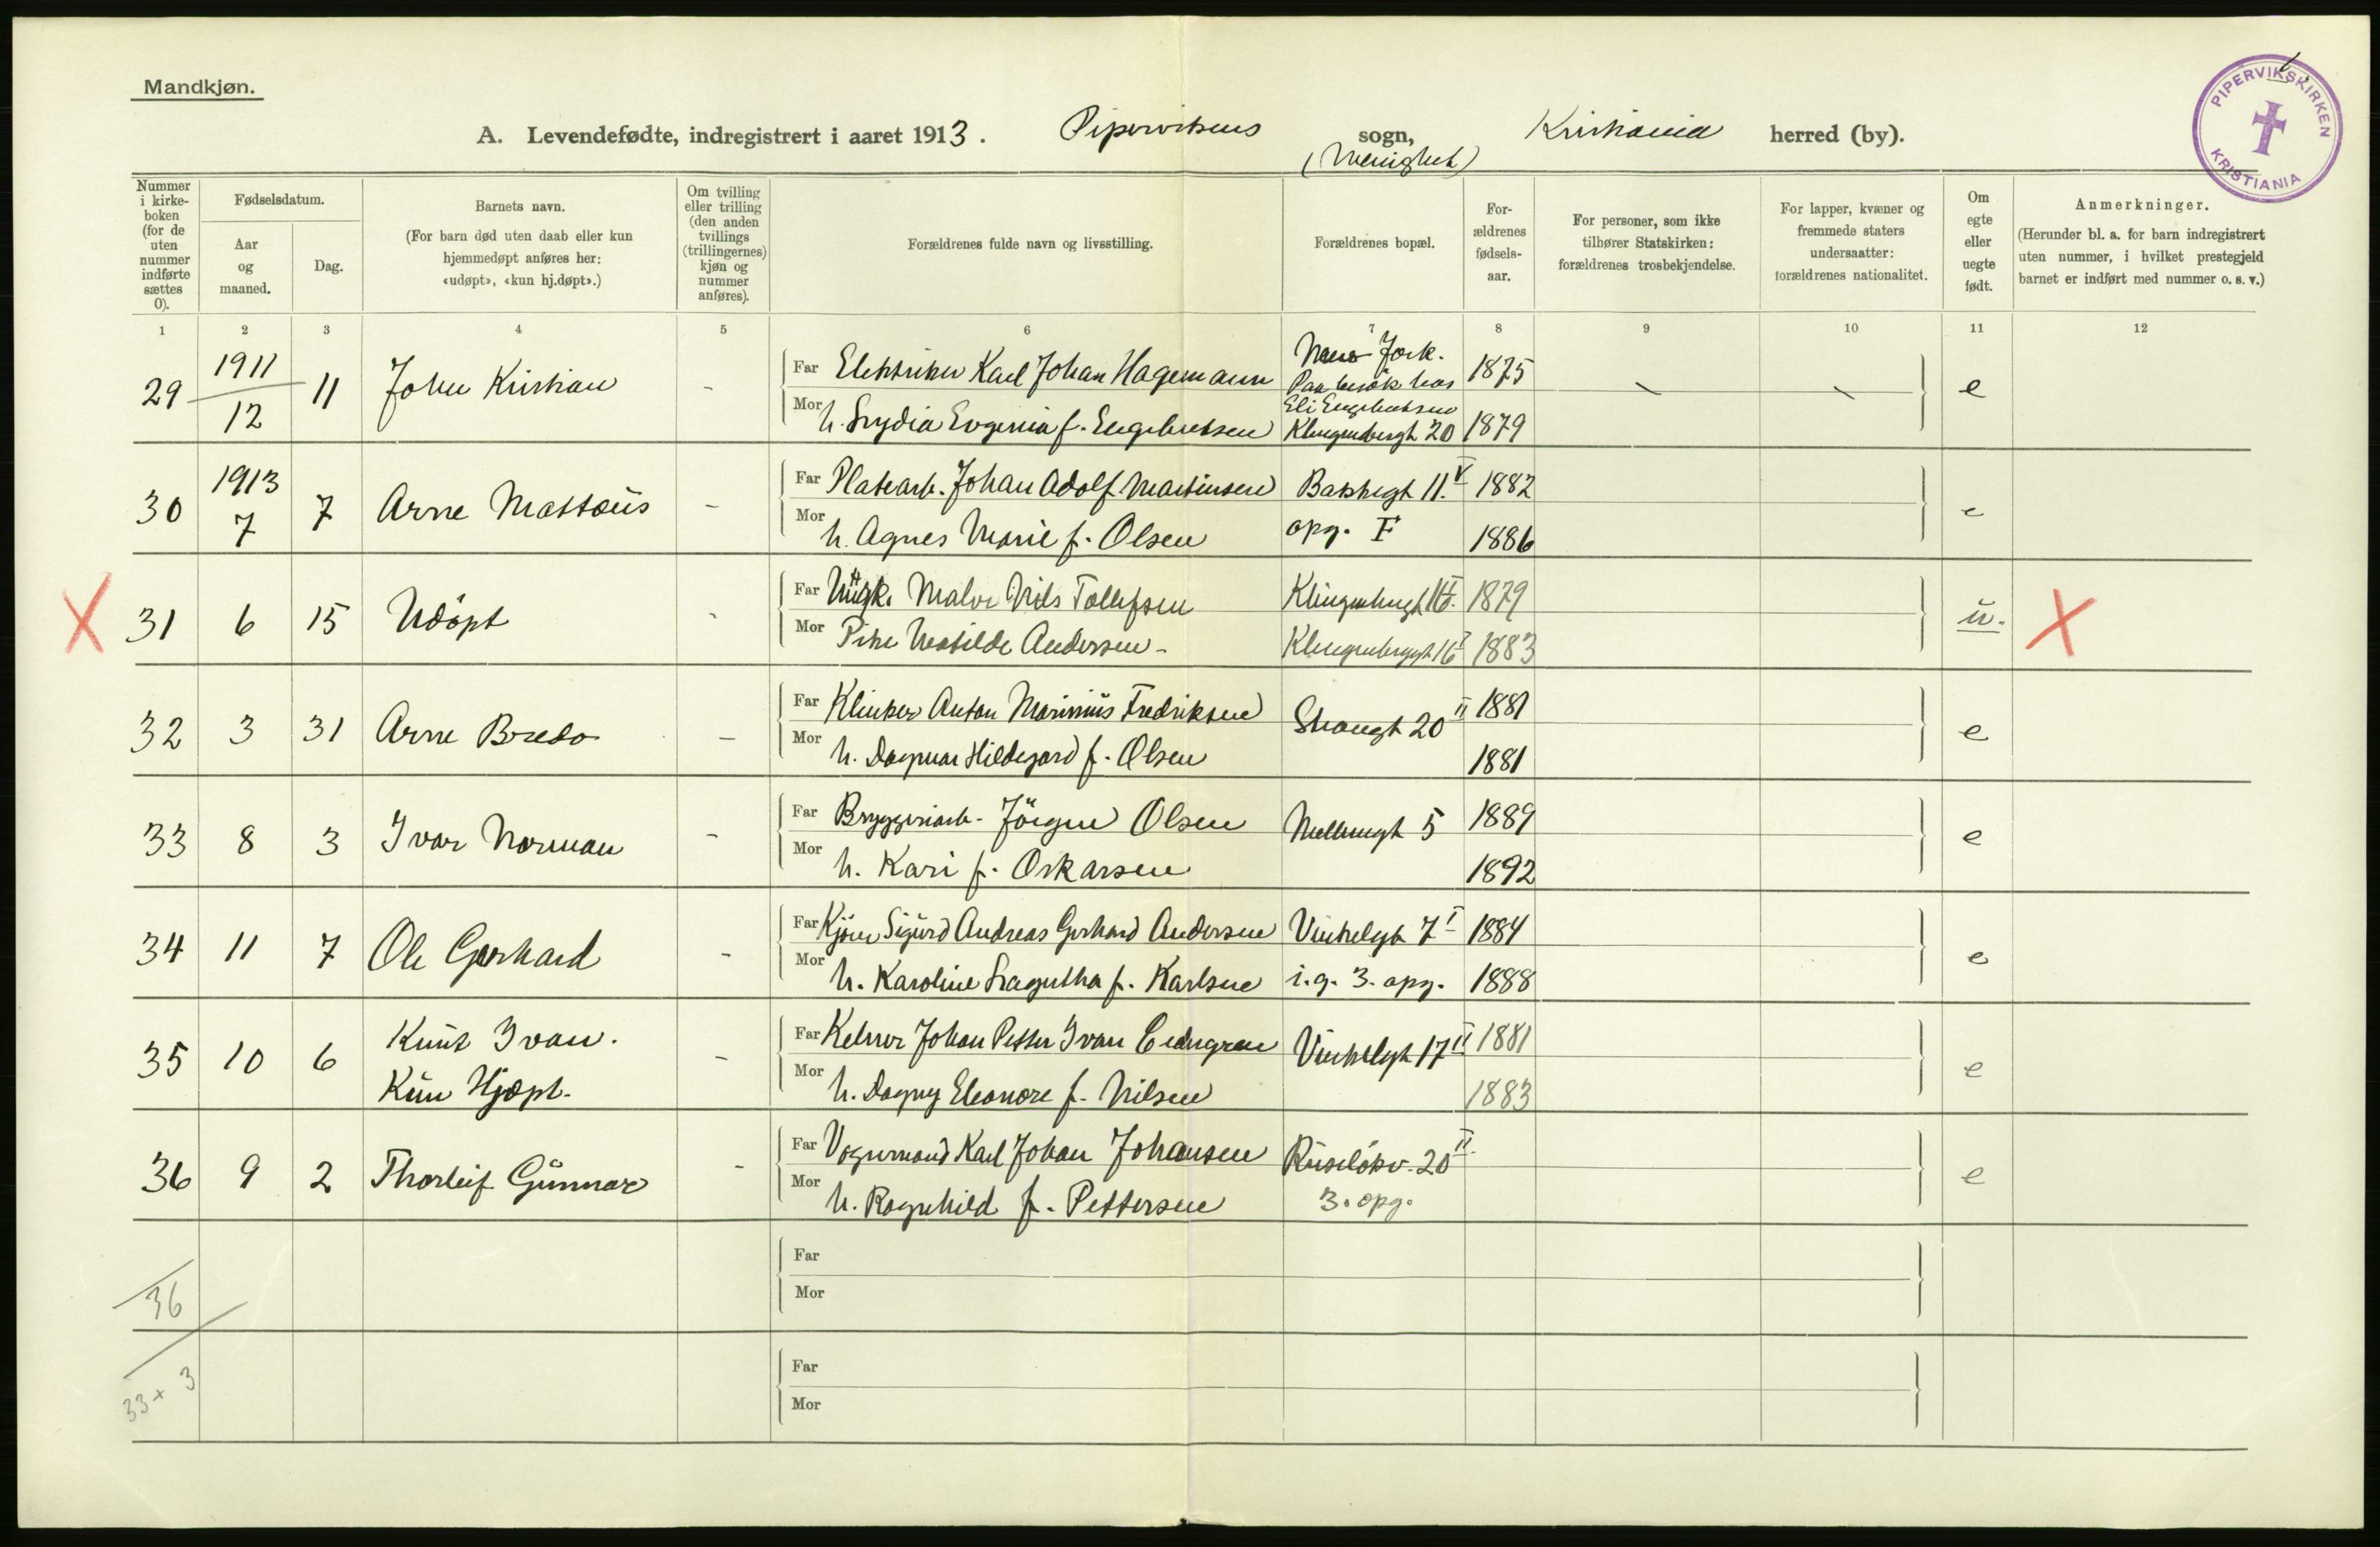 Mandkjøn.
PIPERVIKSKIRKEN
KRISTIANIA
A. Levendefødte, indregistrert i aaret 1913. Pipervikens sogn, Kristiania herred (by).
(Menighet)
Nummer i kirkeboken (for de uten nummer indførte sættes 0).
Fødselsdatum.
Aar og maaned.
Dag.
Barnets navn.
(For barn død uten daab eller kun
hjemmedøpt anføres her:
«udøpt», «kun hj.døpt».)
Om tvilling
eller trilling
(den anden
tvillings
(trillingernes)
kjøn og
nummer
anføres).
Forældrenes fulde navn og livsstilling.
Forældrenes bopæl.
For-
ældrenes
fødsels-
aar.
For personer, som ikke
tilhører Statskirken:
forældrenes trosbekjendelse.
For lapper, kvæner og
fremmede staters
undersaatter:
forældrenes nationalitet.
Om
egte
eller
uegte
født.
Anmerkninger.
(Herunder bl. a. for barn indregistrert
uten nummer, i hvilket prestegjeld
barnet er indført med nummer o. s. v.)
1 2 3 4 5 6 7 8 9 10 11 12
29 1911 12 11 John Kristian -
Far Elektriker Karl Johan Hagemann New Jork. 1875 e
Paa besøk hos
Mor h. Lydia Evgenia f. Engebretsen Eli Engebretsen
Klingenbergt 20 1879
30 1913 7 7 Arne Mattæus -
Far Platearb. Johan Adolf Martinsen Bakkegt 11. V 1882 e
Mor h. Agnes Marie f. Olsen opg. F 1886
X 31 6 15 Udöpt -
Far Maler Nils Tollefsen 1879 u. X
Mor Pike Matilde Andersen - Klingenberggt 16 I 1883
32 3 31 Arne Bredo -
Far Klinker Anton Marinius Fredriksen Strangt 20 II 1881 e
Mor h. Dagmar Hildegard f. Olsen 1881
33 8 3 Ivar Norman -
Far Bryggeriarb. Jörgen Olsen 5 1889 e
Mor h. Kari f. Oskarsen 1892
34 11 7 Ole Gerhard -
Far Kjörer Sigurd Andreas Gerhard Andersen Vinkelgt 7 I 1884 e
Mor h. Karoline Lagertha f. Karlsen i. g. 3. opg. 1888
35 10 6 Knut Ivan. -
Kun Hjdøpt.
Far Kelner Johan Petter Ivan Cedergren Vinkelgt 17 II 1881 e
Mor h. Dagny Eleonore f. Nilsen 1883
36 9 2 Thorleif Gunnar -
Far Vognmand Karl Johan Johansen Ruselökv. 20 II. e
Mor h. Ragnhild f. Pettersen 3. opg.
Far
36
Mor
Far
33 + 3
Mor